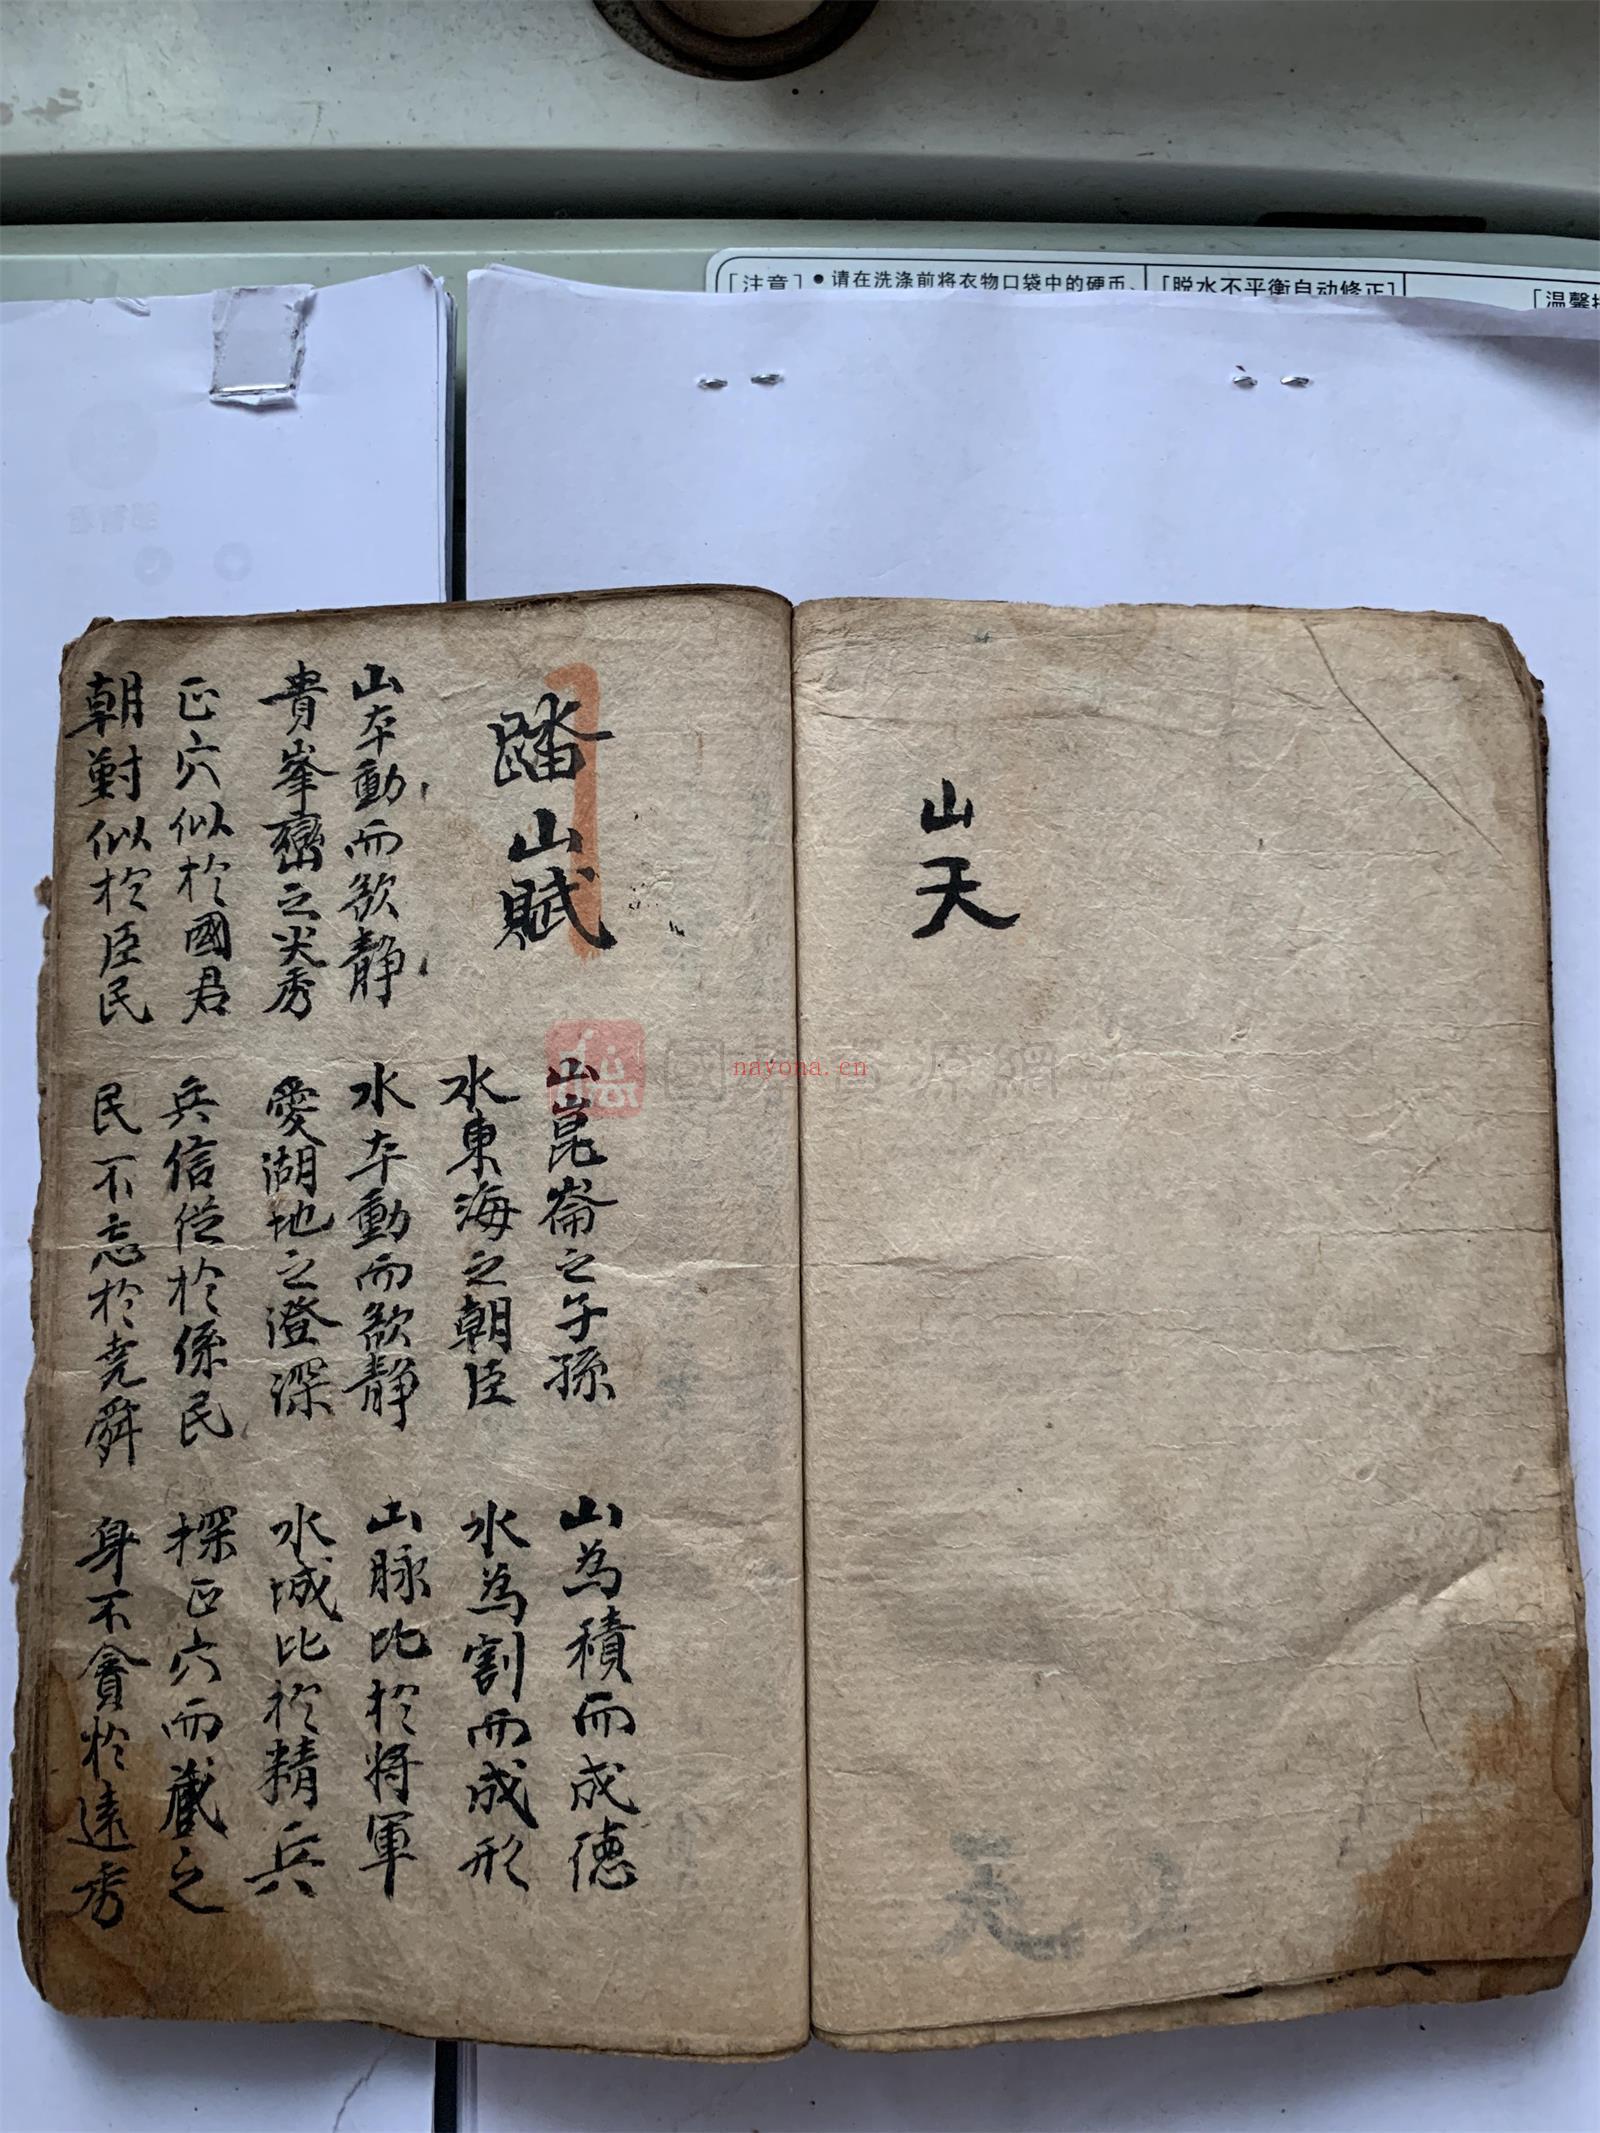 [注意]●请在洗涤前将衣物口袋中的硬币、
[脱水不平衡自动修正]
[温馨
山天
踏山賦
山崑崙之子孫 山為積而成德
水東海之朝臣 水為割而成形
山本動而欲静 水本動而欲静 山脉比於将軍
貴峯巒之尖秀 愛湖地之澄深 水城比於精兵
正穴似於國君 兵信從於係民 探正穴而藏之
朝對似於臣民 民不忘於堯舜 身不貪於遠秀
國學資源網
nayona.cn